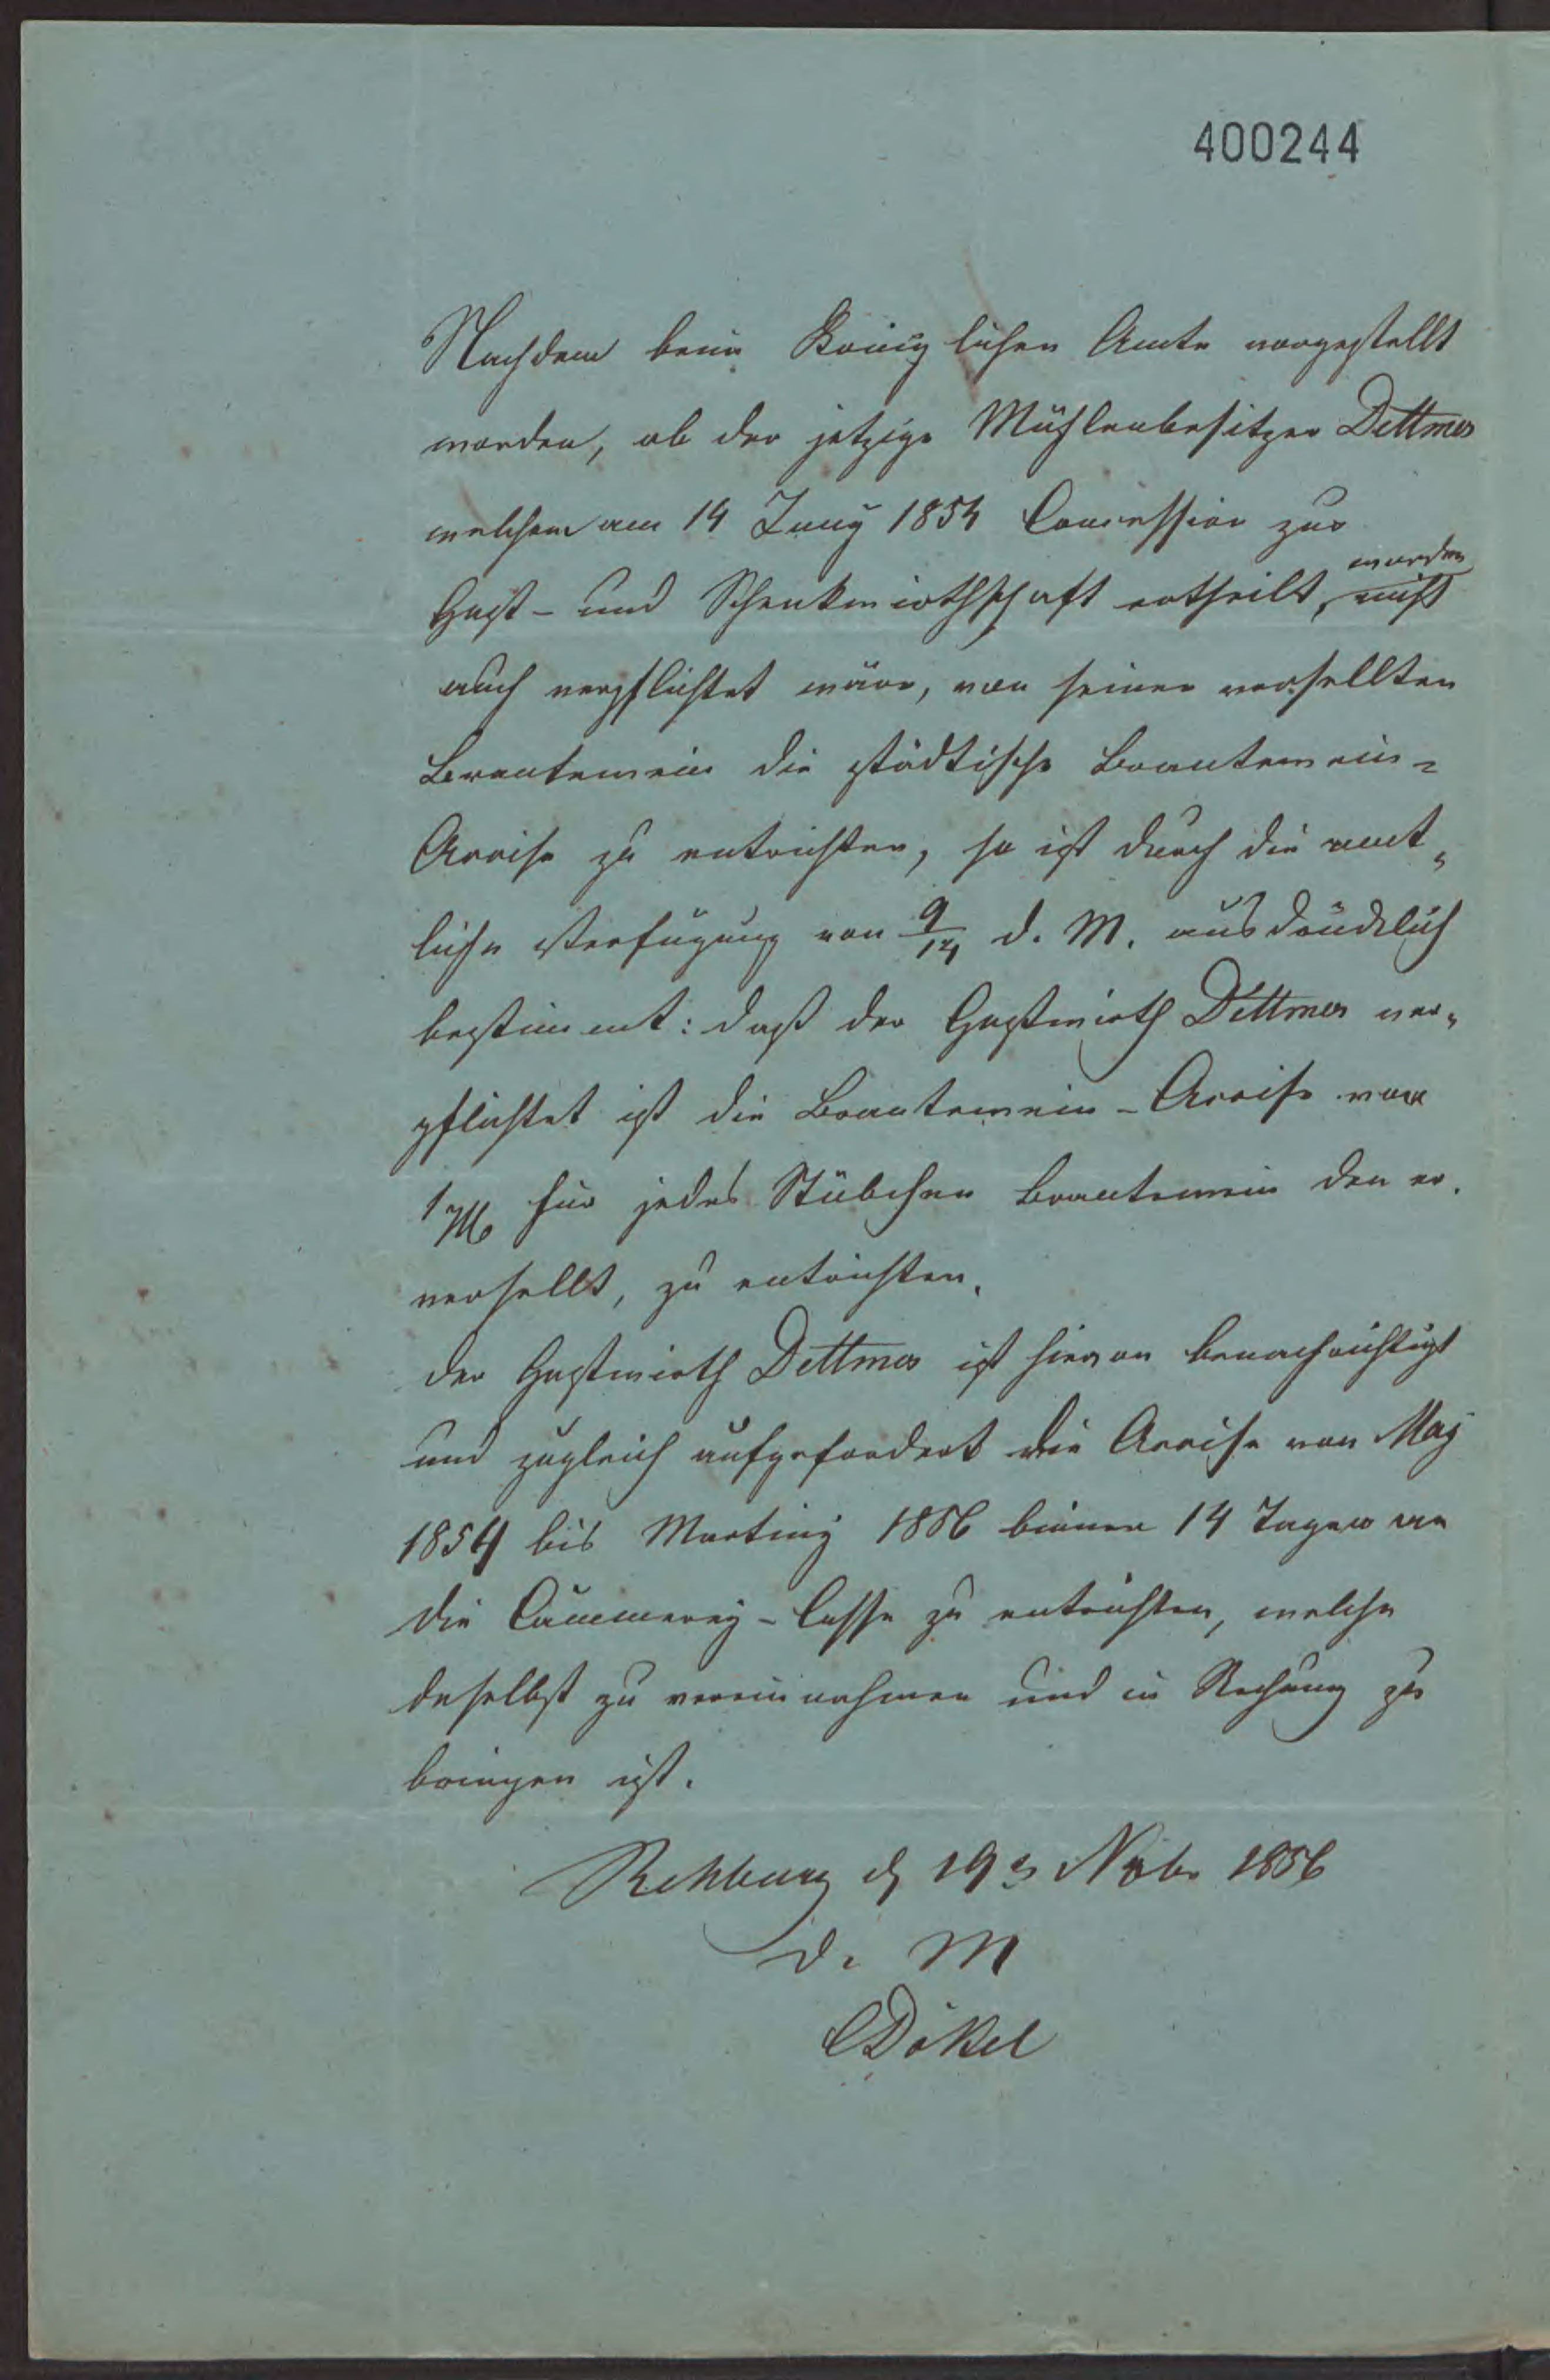 400244
Nachdem beim Königlichen Amte vorgestellt
worden, ob der jetzige Mühlenbesitzer Dettmer
welchem am 14 Juny 1854 Concession zur
worden
Gast- und Schenkwirthschaft ertheilt, nicht
auch verpflichtet wäre, von seinen versellten
Brantewein die städtische Brantewein-
Accise zu entrichten, so ist durch die amt„
liche Verfügung von 9/14 d. M. ausdrücklich
bestimmt: daß der Gastwirth Dettmer ver„
pflichtet ist die Brantewein-Accise von
1 für jedes Stübchen Brantewein den er
versellt, zu entrichten.
der Gastwirth Dettmer ist hievon benachrichtigt
und zugleich aufgefordert die Accise von May
1854 bis Martiny 1856 binnen 14 Tagen an
die Cämmerey-Casse zu entrichten, welche
daselbst zu vereinnahmen und in Rechnung zu
bringen ist.
Rehburg d 19 Nvbr 1856
d. M
Dökel